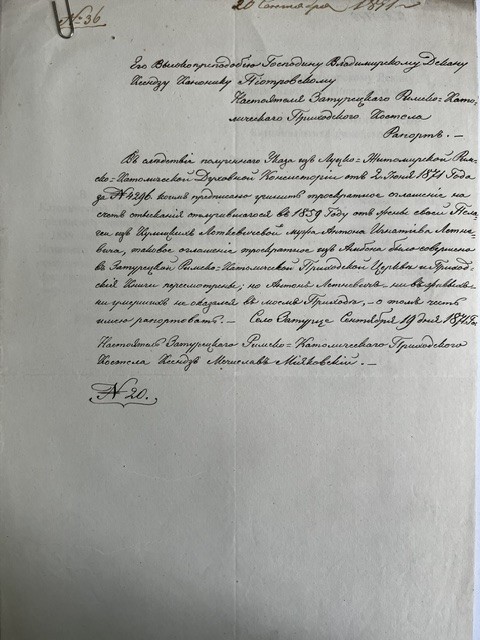 № 36
20 Сентября 1871 г
Его Высокопреподобию Господину Владимирскому Декану
Ксендзу Канонику Піотровскому
Настоятеля Затурецкаго Римско-Като-
лическаго Приходскаго Костела
Рапортъ. —
Въ следствіе полученнаго Указа изъ Луцко-Житомирской Рим-
ско-Католической Духовной Консисторіи отъ 2 Іюня 1871 Года
за № 4296 коимъ предписано учинить троекратное оглашеніе на
счетъ отысканія отлучившагося въ 1859 Году отъ жены своей Пела-
геи изъ Леткевичовой мужа Антона Игнатіева Летке-
вича, таковое оглашеніе троекратное изъ Амвона было совершено
въ Затурецкой Римско-Католической Приходской Церкви и Приход-
скія Книги пересмотрены; но Антонъ Леткевичъ ни въ живыхъ
ни умершихъ не оказался въ моемъ Приходе, — о чемъ честь
имею рапортовать. — Село Затурце Сентября 19 дня 1871 Го.
Настоятель Затурецкаго Римско-Католическаго Приходскаго
Костела Ксендзъ Мечиславъ Мияковскій. —
№ 20.